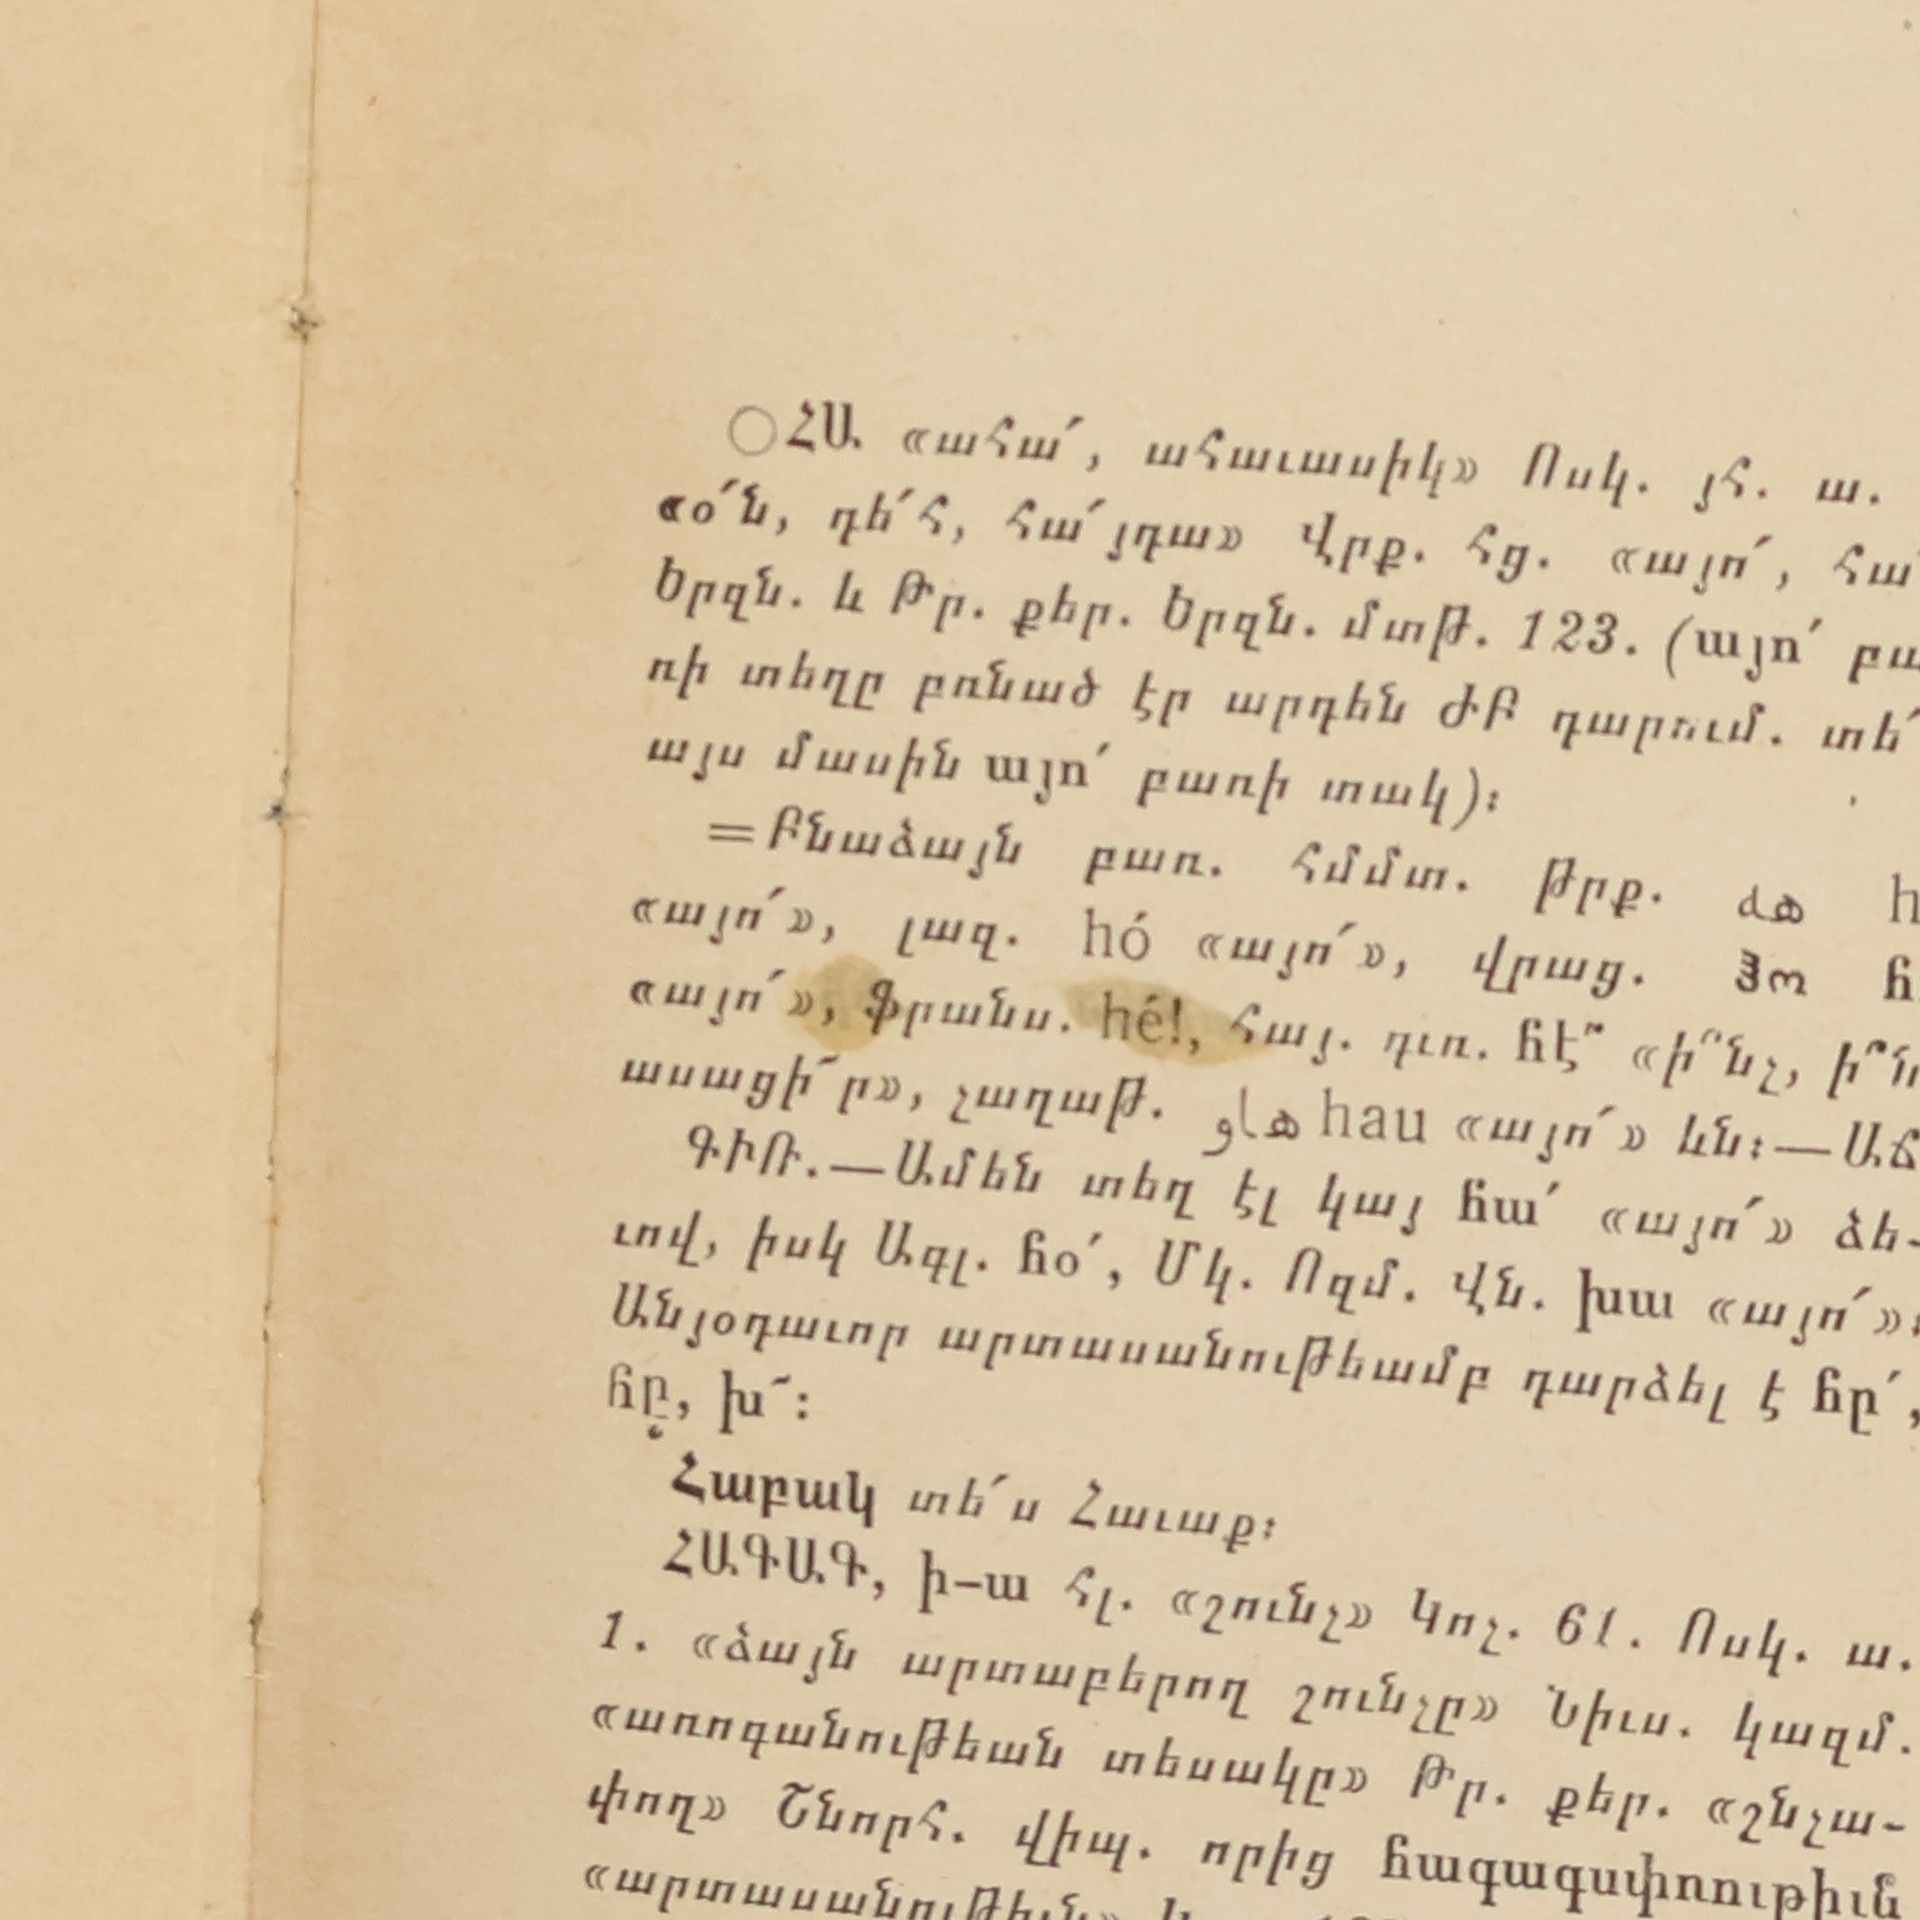 ○ՀԱ «ահա՛, ահաւասիկ» Ոսկ. յհ. ա.
«օ՛ն, դե՛հ, հա՛յդա» Վրք. հց. «այո՛, հա՛
Երզն. և Թր. քեր. Երզն. մտթ. 123. (այո՛ բա
ռի տեղը բռնած էր արդեն ԺԲ դարում. տե՛
այս մասին այո՛ բառի տակ)։
=Բնաձայն բառ. հմմտ. թրք. هه h
«այո՛», լազ. hó «այո՛», վրաց. ჰო հ
«այո՛», ֆրանս. hé!, հայ. գւռ. հէ՞ «ի՞նչ, ի՞ն
ասացի՞ր», չաղաթ. هاو hau «այո՛» ևն։—Աճ
ԳՒՌ.—Ամեն տեղ էլ կայ հա՛ «այո՛» ձե-
ւով, իսկ Ագլ. հօ՛, Մկ. Ոզմ. Վն. խա «այո՛»։
Անյօդաւոր արտասանութեամբ դարձել է հը՛,
հը̣, խ՜։
Հաբակ տե՛ս Հաւաք։
ՀԱԳԱԳ, ի-ա հլ. «շունչ» Կոչ. 61. Ոսկ. ա.
1. «ձայն արտաբերող շունչը» Նիւս. կազմ.
«առոգանութեան տեսակը» Թր. քեր. «շնչա-
փող» Շնորհ. վիպ. որից հագագսփռութիւն
«արտասանութիւն»